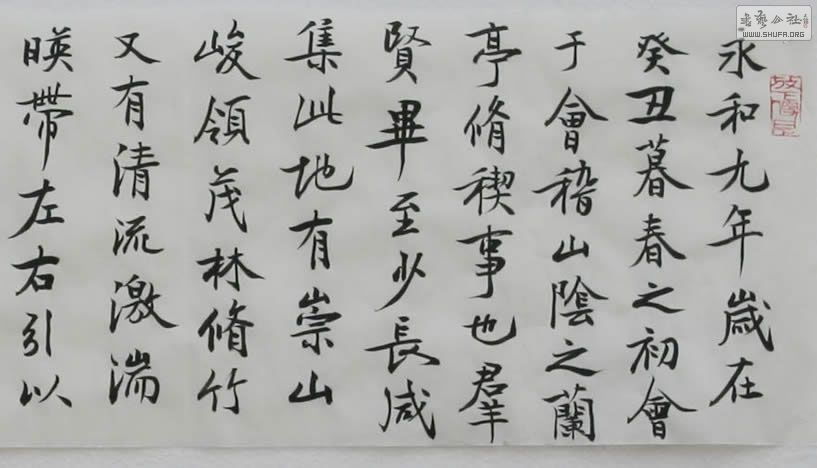 永和九年歲在
癸丑暮春之初會
于會稽山陰之蘭
亭脩禊事也羣
賢畢至少長咸
集此地有崇山
峻領茂林脩竹
又有清流激湍
暎帶左右引以
書藝公社
WWW.SHUFA.ORG